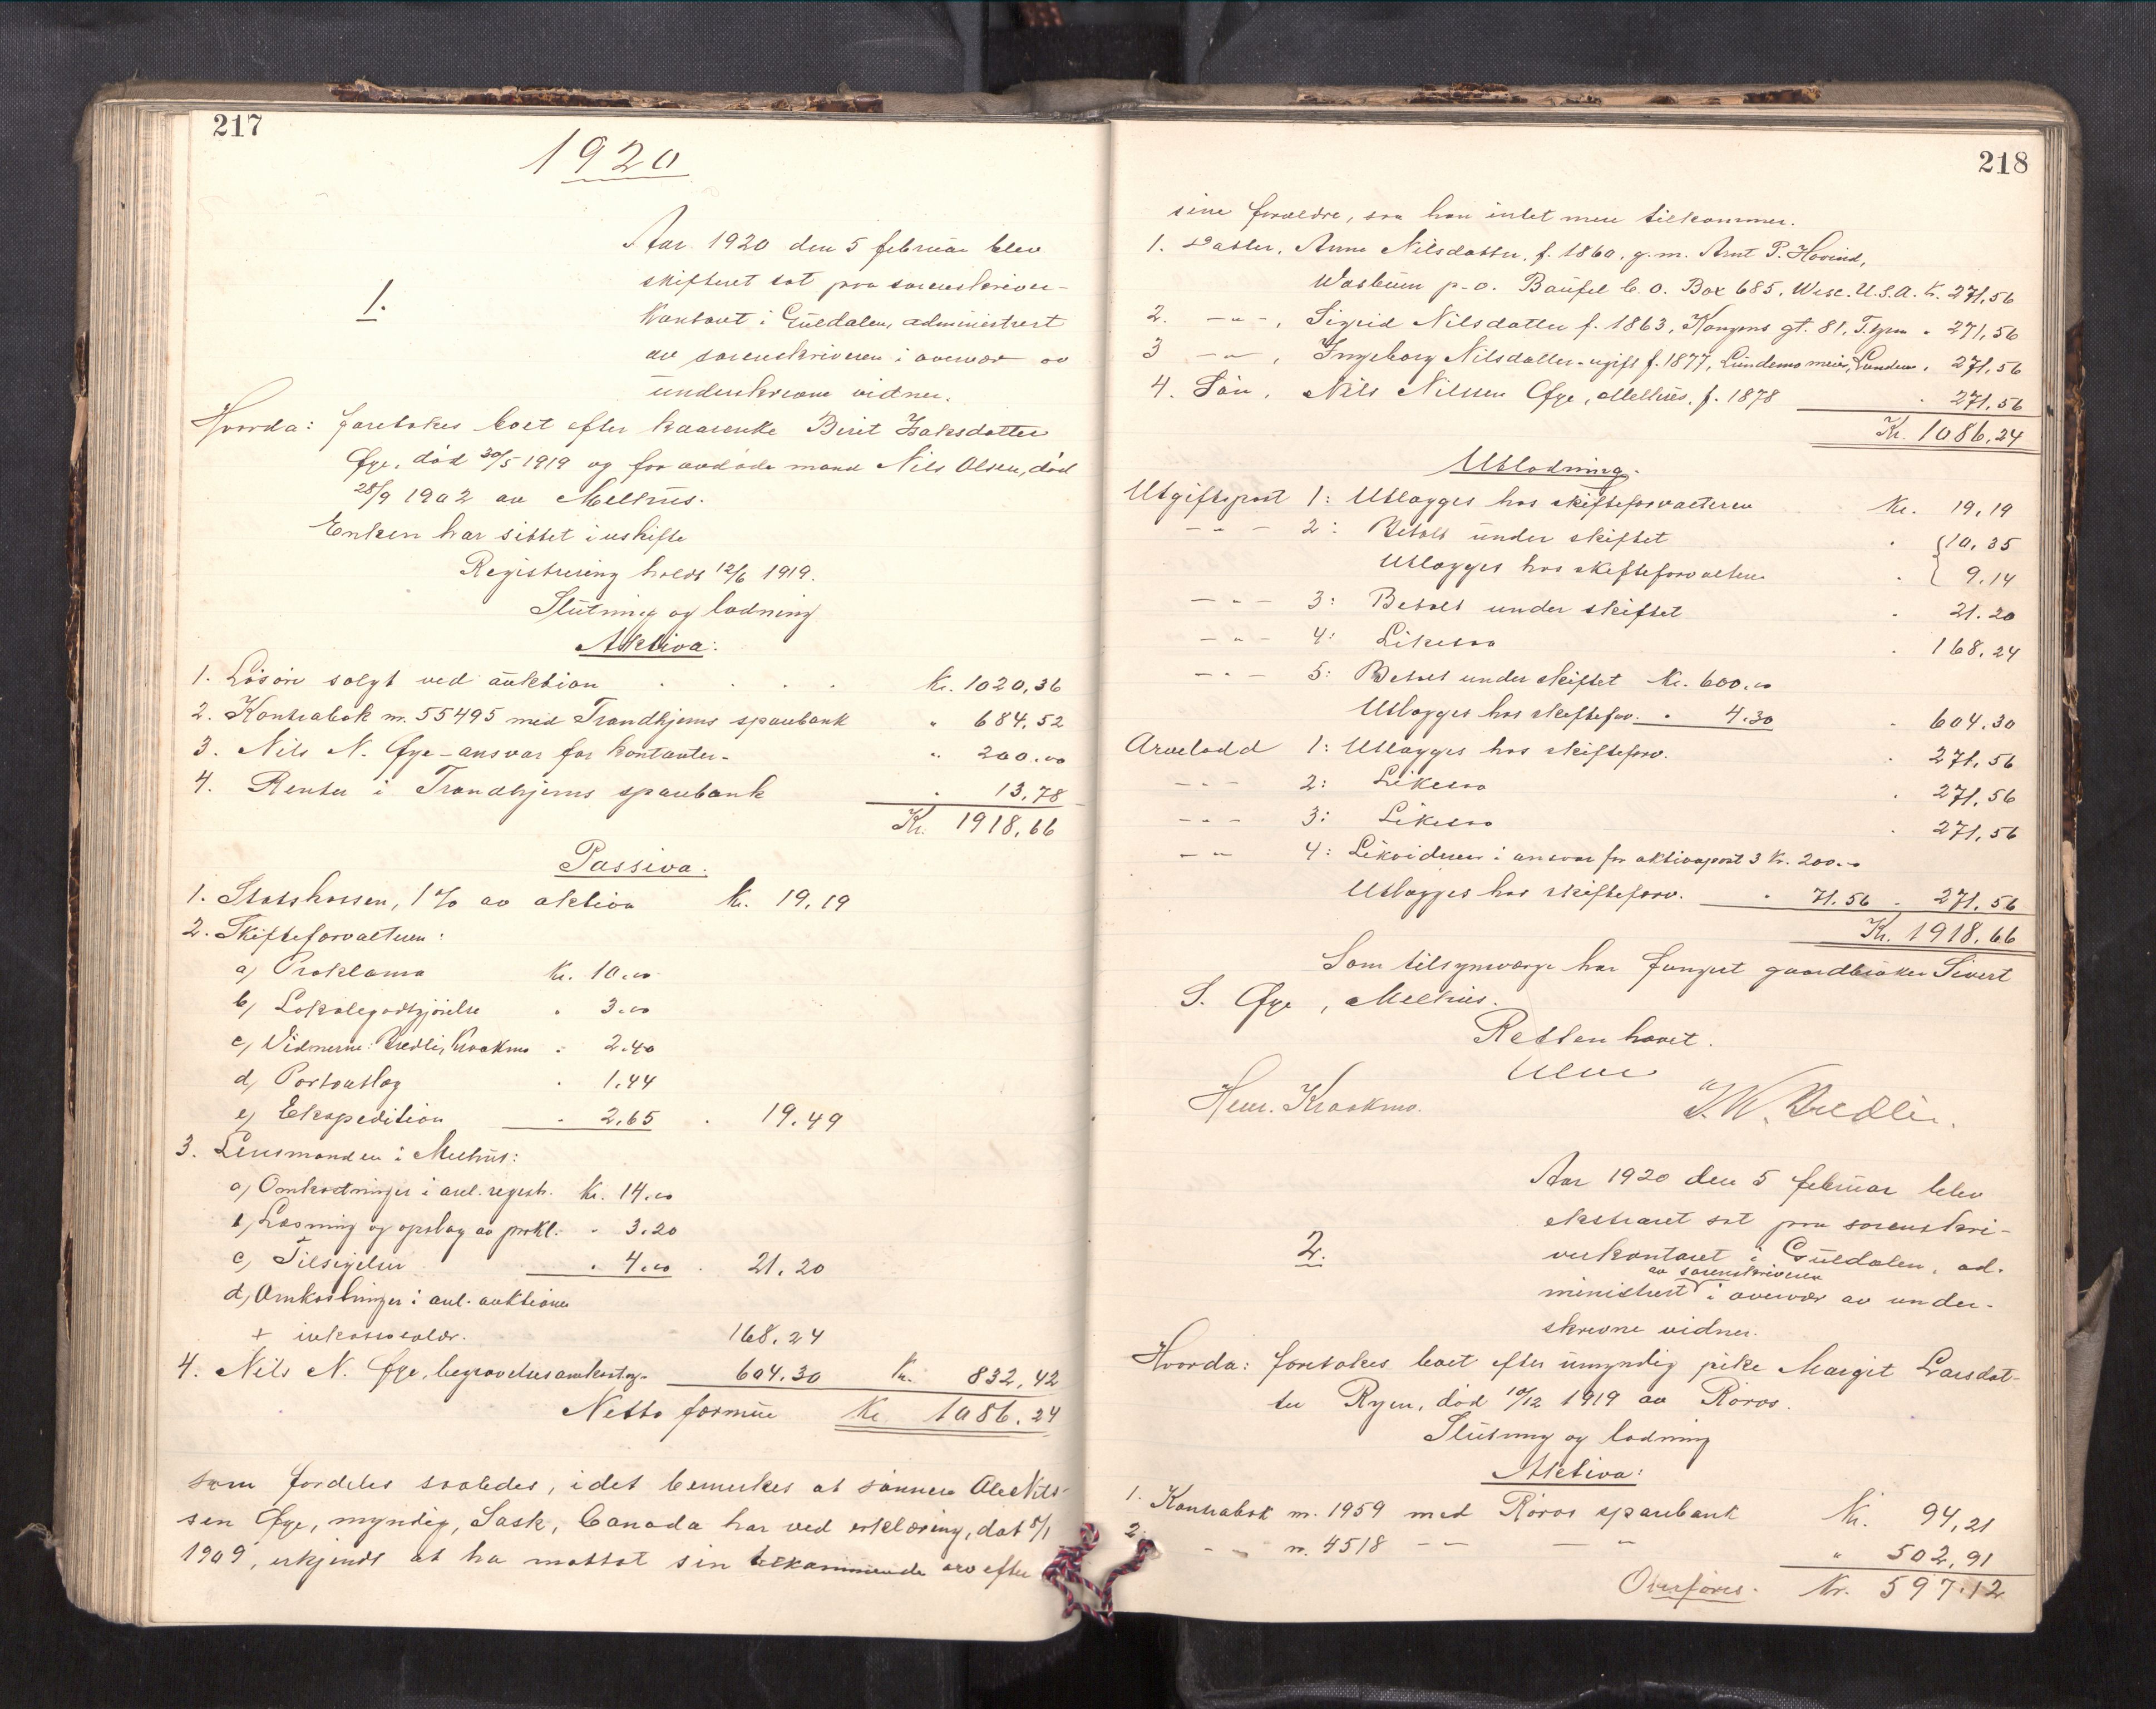 217
1920
1.
Aar 1920 den 5 februar blev
skifteret sat paa sorenskriver-
kontoret i Guldalen, administrert
av sorenskriveren i overvær av
underskrevne vidner.
Hvorda: foretokes boet efter kaarenke Berit Isaksdatter
Øye, död 30/5 1919 og for avdöde mand Nils Olsen, död
28/9 1902 av Melhus.
Enken har sittet i uskifte
Registrering holdt 12/6 1919.
Slutning og lodning
Aktiva:
1. Lösöre solgt ved auktion . . . . Kr. 1020,36
2. Kontrabok nr. 55495 med Trondhjems sparebank " 684,52
3. Nils N. Øye - ansvar for kontanter - " 200.00
4. Renter i Trondhjems sparebank " 13,78
Kr. 1918,66
Passiva.
1. Statskassen, 1% av aktiva Kr. 19,19
2. Skifteforvalteren:
a) Proklama Kr. 10.00
b) Lokalegodtgjörelse " 3.00
c) Vidnerne: Bredli, Kraakmo " 2.40
d) Portoutlag " 1.44
e) Ekspedition " 2,65 " 19.49
3. Lensmanden i Melhus:
a) Omkostninger i anl. registr. Kr. 14.00
b) Læsning og opslag av prokl. " 3.20
c) Tilsigelser " 4.00 " 21.20
d) Omkostninger i anl. auktionen
+ inkassosalær. 168.24
4. Nils N. Øye, begravelsesomkostn. 604.30 Kr. 832,42
Netto formue Kr 1086.24
som fordeles saaledes, idet bemerkes at sönnen Ole Nils-
sen Øye, myndig, Sask, Canada har ved erklæring, dat 8/1
1909, erkjendt at ha mottat sin tilkommende arv efter
218
sine forældre, saa han intet mere tilkommer.
1. Datter, Anne Nilsdatter, f. 1860, g.m. Arnt P. Hovind,
p.o. Box 685, Wisc. U.S.A. Kr. 271,56
2. -"-, Sigrid Nilsdatter f. 1863, Kongens gt. 81, T.hjem " 271,56
3 -"-, Ingeborg Nilsdatter - ugift f. 1877, Lundemo meieri, Lundemo " 271,56
4. Sön, Nils Nilsen Øye, Melhus, f. 1878 " 271,56
Kr. 1086,24
Utlodning.
Utgiftspost 1: Utlægges hos skifteforvalteren Kr. 19,19
-"- 2: Betalt under skiftet " {10,35
Utlægges hos skifteforvalteren " { 9.14
-"- 3: Betalt under skiftet " 21.20
-"- 4: Likesaa " 168.24
-"- 5: Betalt under skiftet Kr. 600.00
Utlægges hos skifteforv. " 4.30 " 604.30
Arvelodd 1: Utlægges hos skifteforv. " 271,56
-"- 2: Likesaa " 271,56
-"- 3: Likesaa " 271,56
-"- 4: Likvideres i ansvar for aktivapost 3 Kr. 200.-
Utlægges hos skifteforv. " 71.56 " 271,56
Kr. 1918,66
Som tilsynsværge har fungert gaardbruker Sivert
S. Øye, Melhus.
Retten hævet.
Henr. Kraakmo. Bredli.
2.
Aar 1920 den 5 februar blev
ekstraret sat paa sorenskri-
verkontoret i Guldalen, ad-
av sorenskriveren
ministrert i overvær av under-
skrevne vidner.
Hvorda: foretokes boet efter umyndig pike Margit Larsdat-
ter Ryen, död 10/12 1919 av Röros.
Slutning og lodning
Aktiva:
1. Kontrabok nr. 1959 med Röros sparebank Kr. 94,21
2. -"- nr. 4518 -"- -"- " 502,91
Overföres. Kr. 597.12